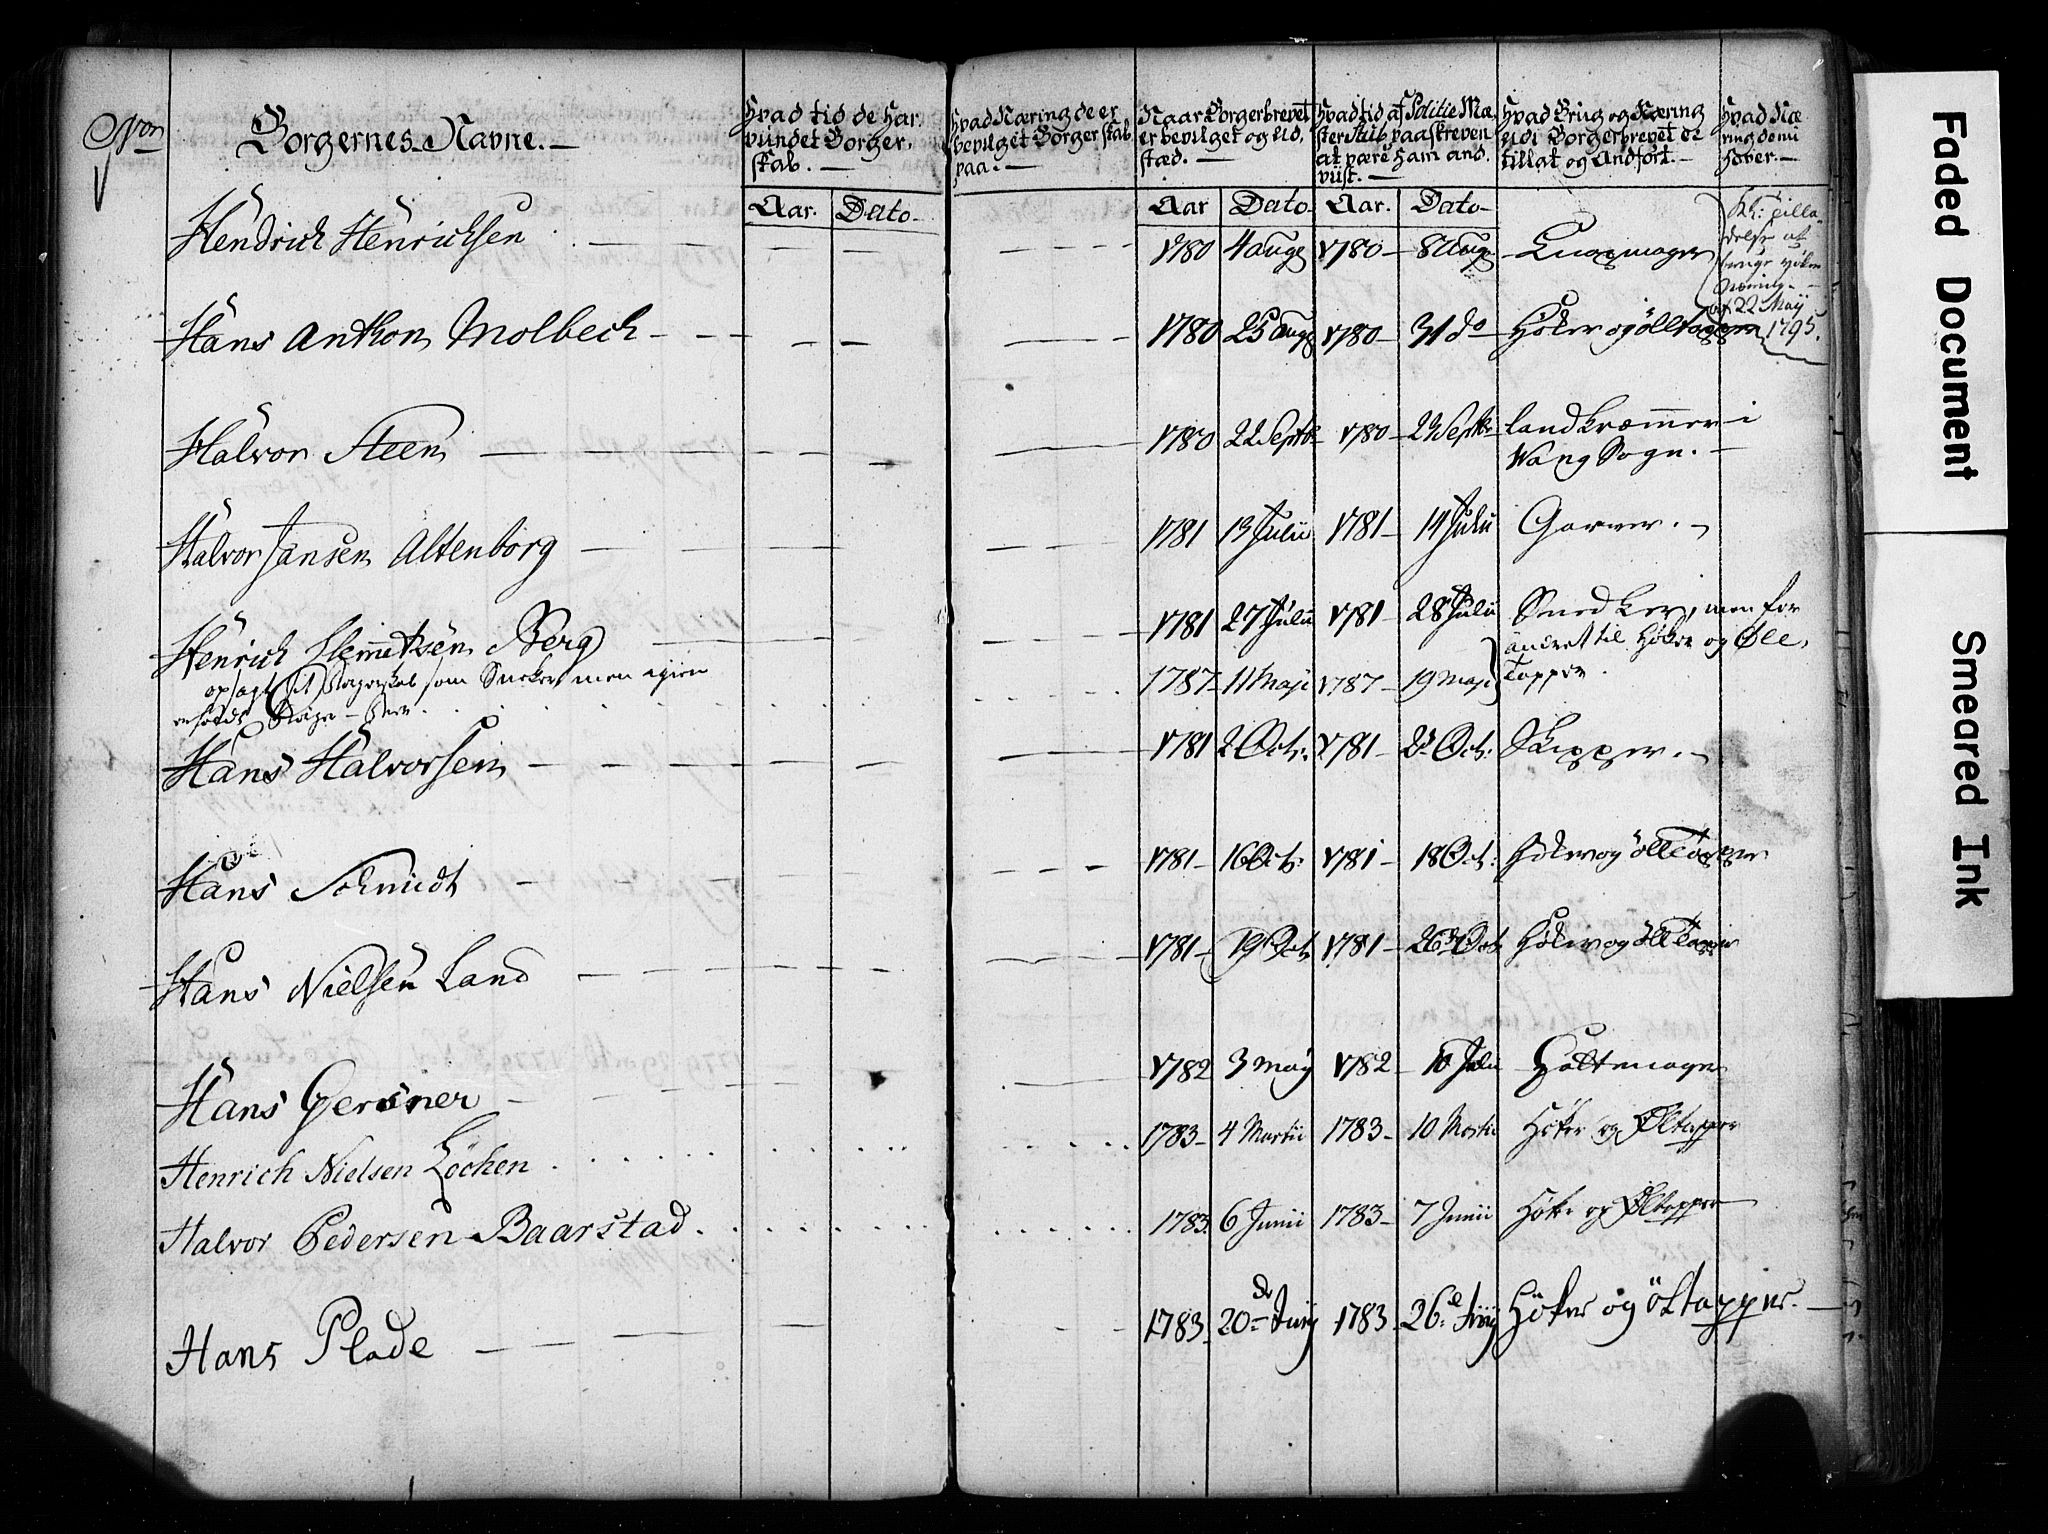 Nro
Borgernes Navne. —
Hvad tid de har vundet Borgerskab. —
Hvad Næring de er bevilget Borgerskab paa. —
Naar Borgerbrevet er bevilget og Udstæd. —
Hvad tid af Politie Mæster Sub paaskreven at være ham andviist. —
Hvad Brug og Næring udi Borgerbrevet er tillat og Andført. —
Hvad Næring de nu haver —
Aar. Dato Aar Dato Aar. Dato
Hendrich Henrichsen — 1780 4 aug 1780 8 Aug
af 22 May 1795.
Hans Anthon Molbech — 1780 25 Aug 1780 31 do Høker og ölltapper
Halvor Steen — 1780 22 Septb 1780 Septbr Landkræmmer i
Wang Sogn. —
Halvor Jansen Altenborg — 1781 13 Julii 1781 14 Julii Garver. —
Henrich Berg — 1781 27 Julii 1781 28 Julii Snedker, men for
andret til Høker og Øll
opsagt sit Borgerskab som Sneker men igien 1787 11 Maji 1787 19 Maji Tapper.
Hans Halvorsen — 1781 2 Oct: 1781 Oct: Skipper. —
Hans Schmidt — 1781 16 Oct: 1781 18 Oct: Høker og ölltapper
Hans Nielsen Land — 1781 19 Oct 1781 26 Oct Høker og ölltapper
Hans — 1782 3 May 1782 10 Juli Hattemager
Henrich Nielsen Löchen . 1783 4 Martii 1783 10 Martii Høker og Øltapper
Halvor Pedersen Baarstad. 1783 6 Junii 1783 7 Junii Høker og Øltapper
Hans Plade — 1783 20 de Junij 1783 26 Junij Høker og öltapper. —
Faded Document
Smeared Ink